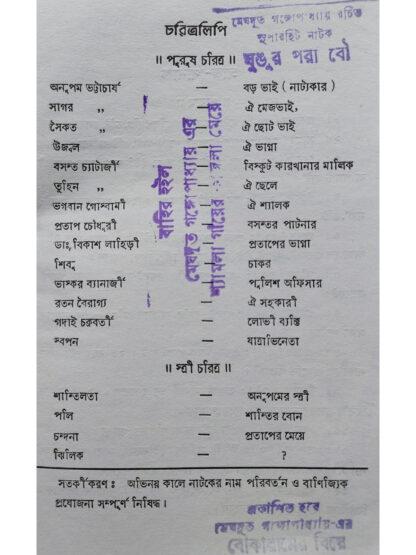 চরিত্রলিপি
মেঘদূত গঙ্গোপাধ্যায় রচিত
সুপারহিট নাটক
ঘুঙুর পরা বৌ
॥ পুরুষ চরিত্র ॥
অনুপম ভট্টাচার্য — বড় ভাই ( নাট্যকার )
সাগর „ — ঐ মেজভাই,
সৈকত „ — ঐ ছোট ভাই
উজ্জল — ঐ ভাগ্না
বসন্ত চ্যাটার্জী — বিস্কুট কারখানার মালিক
তুহিন „ — ঐ ছেলে
ভগবান গোস্বামী — ঐ শ্যালক
প্রতাপ চৌধুরী — বসন্তর পার্টনার
ডাঃ বিকাশ লাহিড়ী — প্রতাপের ভাগ্না
শিবু — চাকর
ভাস্কর ব্যানার্জী — পুলিশ অফিসার
রতন বৈরাগ্য — ঐ সহকারী
গদাই চক্রবর্তী — লোভী ব্যক্তি
স্বপন — যাত্রাভিনেতা
বাহির হইল
মেঘদূত গঙ্গোপাধ্যায় এর
শ্যামলা গাঁয়ের মেয়ে
॥ স্ত্রী চরিত্র ॥
শান্তিলতা — অনুপমের স্ত্রী
পলি — শান্তির বোন
চন্দনা — প্রতাপের মেয়ে
ঝিলিক — ?
সতর্কীকরণ : অভিনয় কালে নাটকের নাম পরিবর্তন ও বাণিজ্যিক
প্রযোজনা সম্পূর্ণ নিষিদ্ধ ।
প্রকাশিত হবে
মেঘদূত গঙ্গোপাধ্যায়-এর
বোকারামের বিয়ে